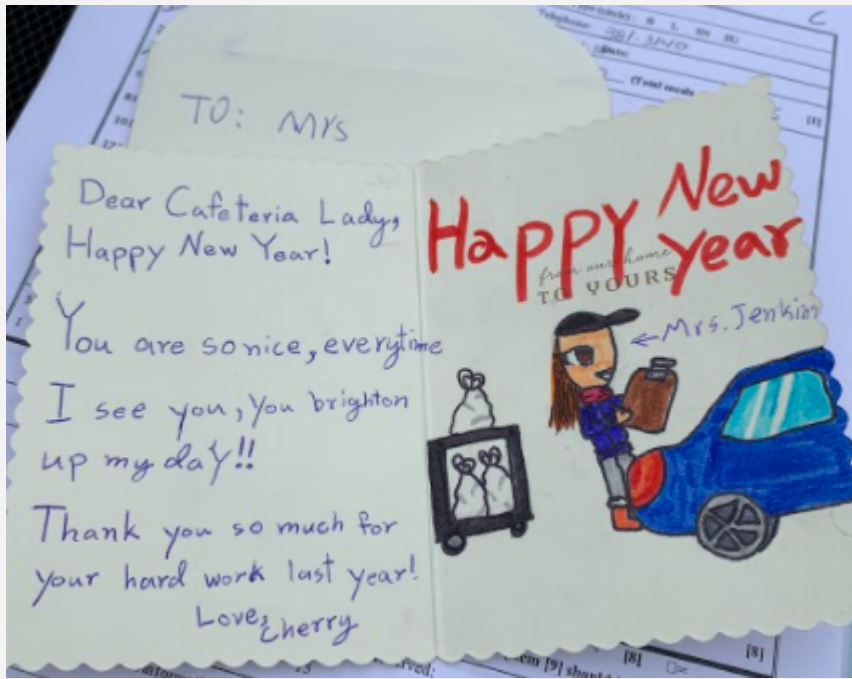 TO: Mrs
Dear Cafeteria Lady,
Happy New Year!
You are so nice, everytime
I see you, you brighton
up my day!!
Thank you so much for
your hard work last year!
Love,
Cherry
Happy New
year
from our home
TO YOURS
←Mrs. Jenkins
C
Telephone:
Date:
(Total meals
[8]
[8]
[9]